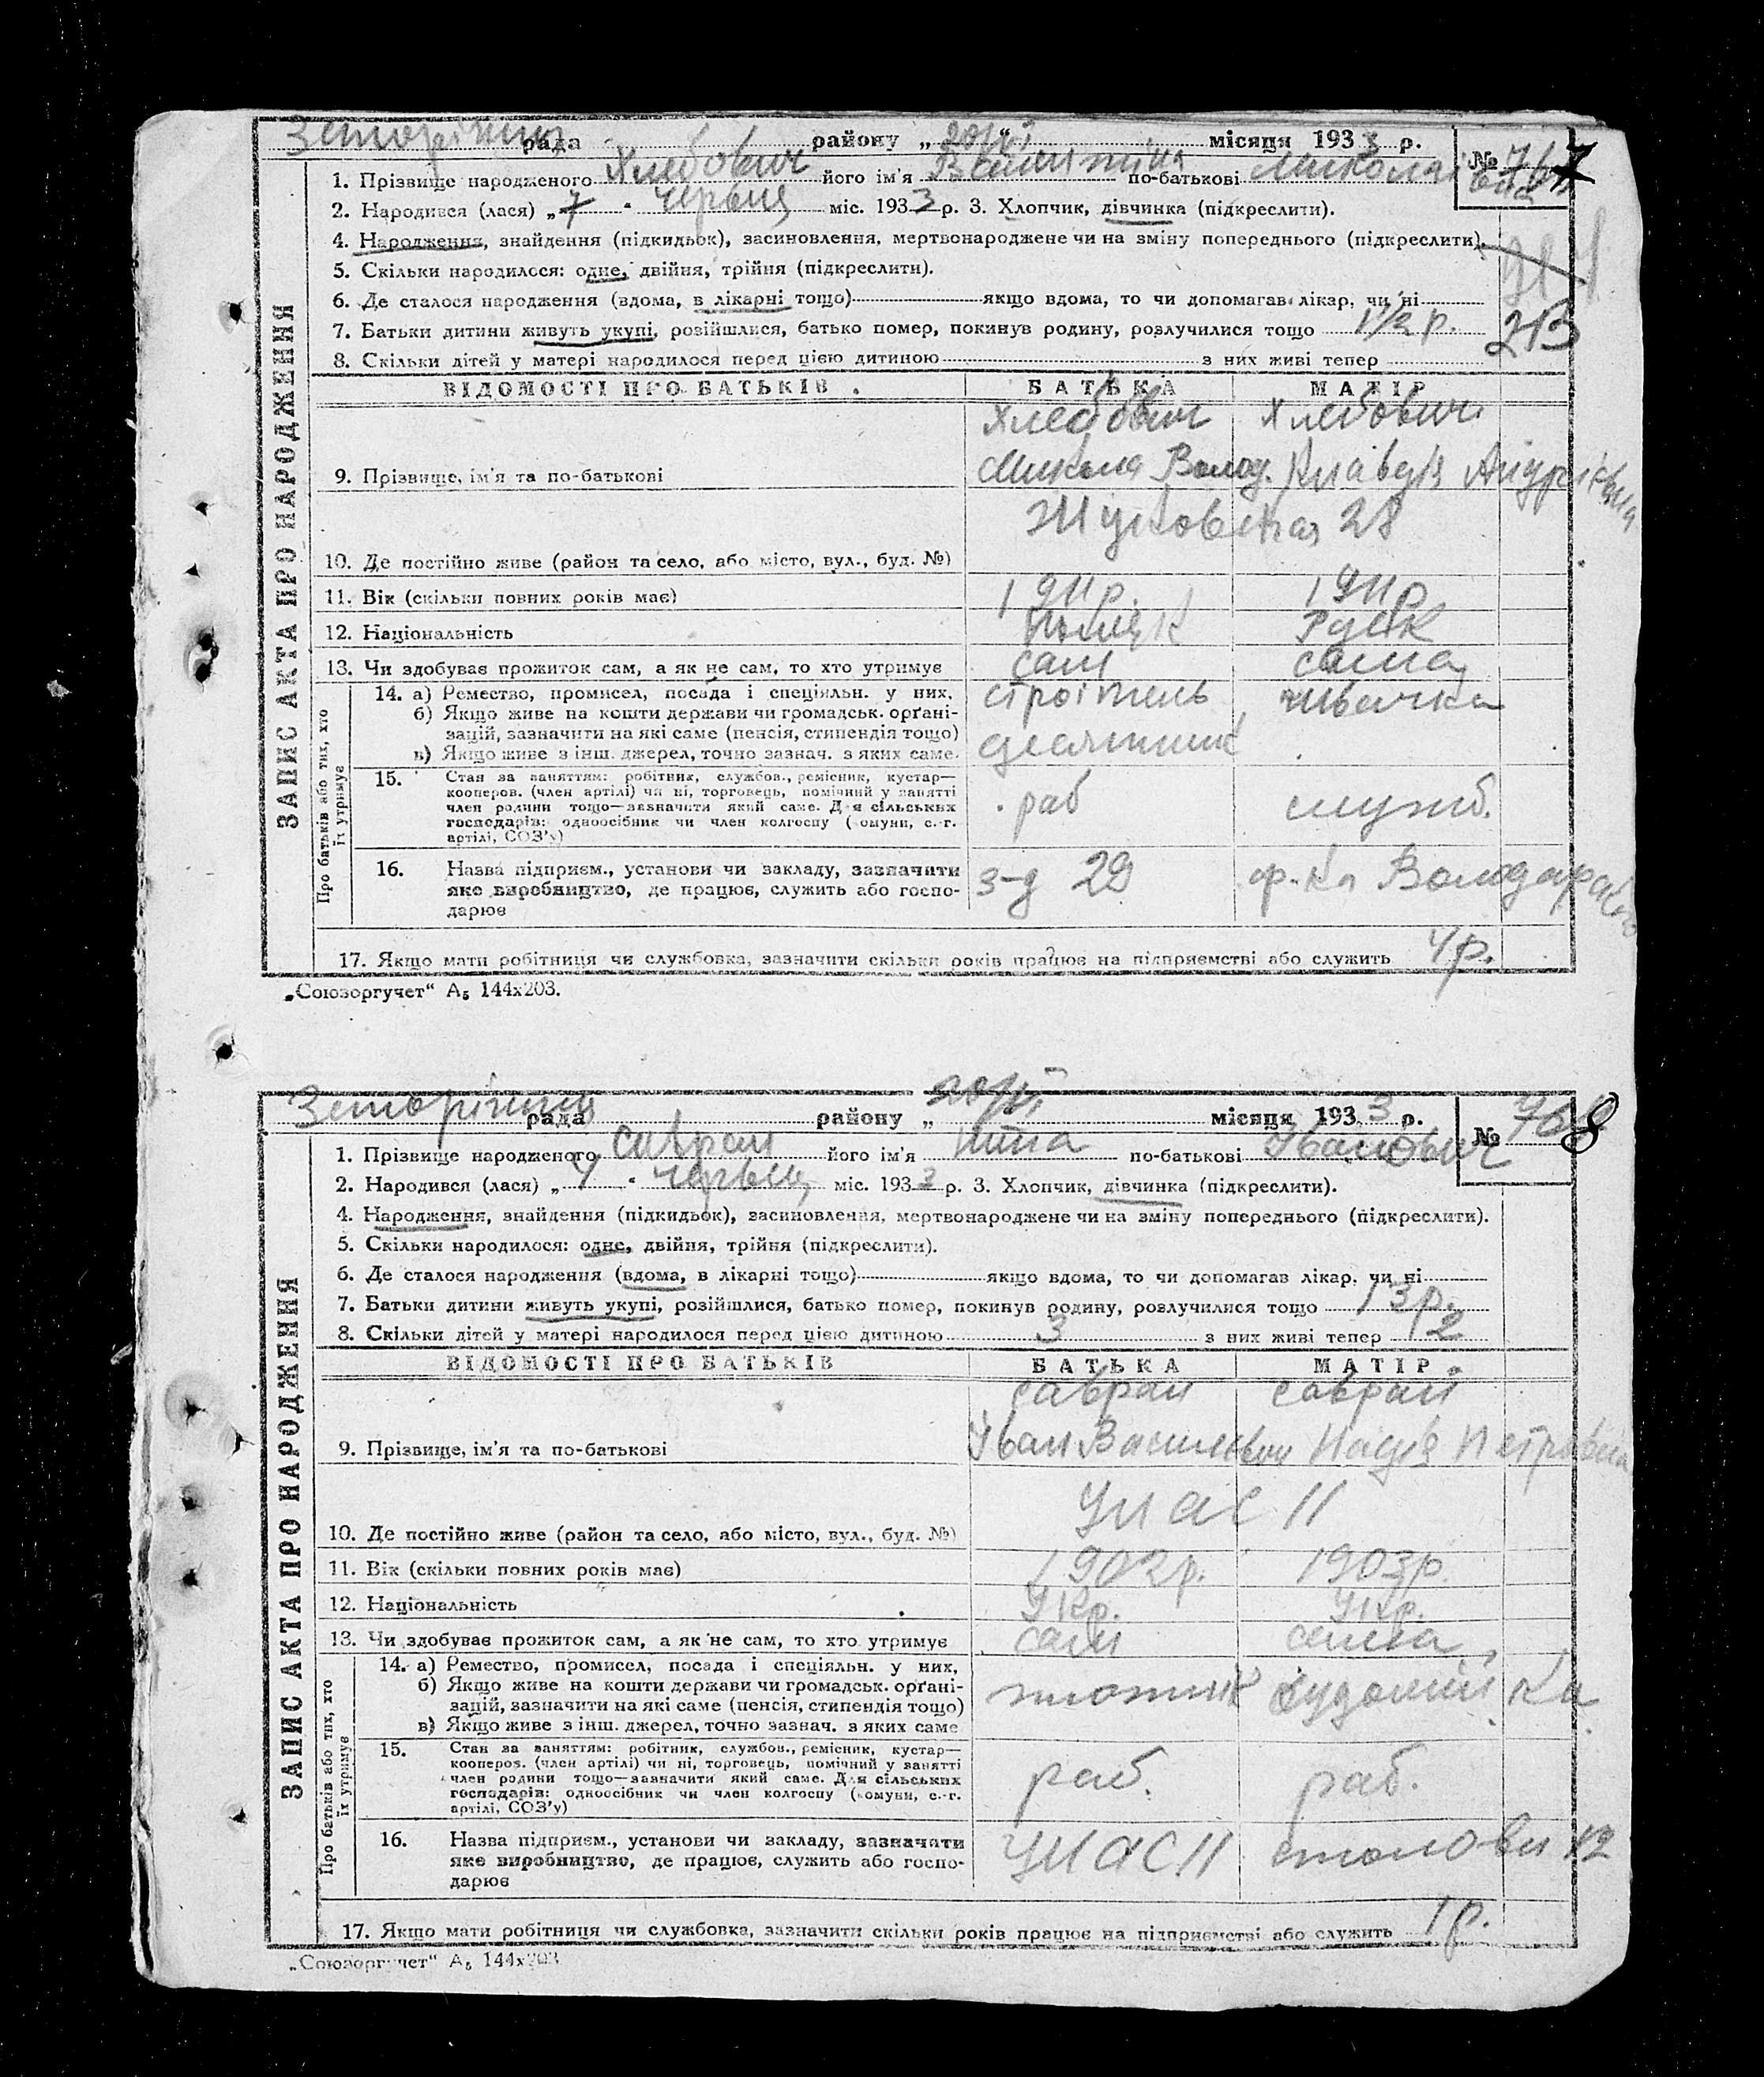 рада району „ місяця 1933 р.
№ 767
1. Прізвище народженого Хлебович його ім'я Валентина по-батькові Миколаївна
2. Народився (лася) „7“ червня міс. 1933 р. 3. Хлопчик, дівчинка (підкреслити).
4. Народження, знайдення (підкидьок), засиновлення, мертвонароджене чи на зміну попереднього (підкреслити).
5. Скільки народилося: одне, двійня, трійня (підкреслити).
6. Де сталося народження (вдома, в лікарні тощо) якщо вдома, то чи допомагав лікар, чи ні
7. Батьки дитини живуть укупі, розійшлися, батько помер, покинув родину, розлучилися тощо 1 1/2 р.
8. Скільки дітей у матері народилося перед цією дитиною з них живі тепер
ЗАПИС АКТА ПРО НАРОДЖЕННЯ
ВІДОМОСТІ ПРО БАТЬКІВ БАТЬКА МАТІР
Хлебович Хлебович
9. Прізвище, ім'я та по-батькові Микола Волод. Клавдія Андріївна
28
10. Де постійно живе (район та село, або місто, вул., буд. №)
11. Вік (скільки повних років має) 1911р. 1911р
12. Національність
13. Чи здобуває прожиток сам, а як не сам, то хто утримує сам сама
Про батьків або тих, хто їх утримує
14. а) Ремество, промисел, посада і спеціяльн. у них. строітель швачка
б) Якщо живе на кошти держави чи громадськ. орґані-
зацій, зазначити на які саме (пенсія, стипендія тощо)
в) Якщо живе з інш. джерел, точно зазнач. з яких саме. десятник
15. Стан за заняттям: робітник, службов., ремісник, кустар—
кооперов. (член артілі) чи ні, торговець, помічний у занятті
член родини тощо—зазначити який саме. Для сільських
господарів: одноосібник чи член колгоспу (комуни, с.-г.
артілі, СОЗ'у)
раб служб.
16. Назва підприєм., установи чи закладу, зазначати
яке виробництво, де працює, служить або госпо-
дарює
з-д 29 ф-ка Володарского
17. Якщо мати робітниця чи службовка, зазначити скільки років працює на підприємстві або служить 4р.
„Союзоргучет“ А₅ 144х203.
рада району „ місяця 1933 р.
№ 768
1. Прізвище народженого Савран його ім'я Ніна по-батькові Іванович
2. Народився (лася) „4“ червня міс. 1933 р. 3. Хлопчик, дівчинка (підкреслити).
4. Народження, знайдення (підкидьок), засиновлення, мертвонароджене чи на зміну попереднього (підкреслити).
5. Скільки народилося: одне, двійня, трійня (підкреслити).
6. Де сталося народження (вдома, в лікарні тощо) якщо вдома, то чи допомагав лікар, чи ні
7. Батьки дитини живуть укупі, розійшлися, батько помер, покинув родину, розлучилися тощо 13р.
8. Скільки дітей у матері народилося перед цією дитиною 3 з них живі тепер 2
ЗАПИС АКТА ПРО НАРОДЖЕННЯ
ВІДОМОСТІ ПРО БАТЬКІВ БАТЬКА МАТІР
Савран Савран
9. Прізвище, ім'я та по-батькові Іван Васильович Надія Петрівна
11
10. Де постійно живе (район та село, або місто, вул., буд. №)
11. Вік (скільки повних років має) 1902р. 1903р.
12. Національність Укр. Укр.
13. Чи здобуває прожиток сам, а як не сам, то хто утримує сам сама
Про батьків або тих, хто їх утримує
14. а) Ремество, промисел, посада і спеціяльн. у них.
б) Якщо живе на кошти держави чи громадськ. орґані-
зацій, зазначити на які саме (пенсія, стипендія тощо)
в) Якщо живе з інш. джерел, точно зазнач. з яких саме
15. Стан за заняттям: робітник, службов., ремісник, кустар—
кооперов. (член артілі) чи ні, торговець, помічний у занятті
член родини тощо—зазначити який саме. Для сільських
господарів: одноосібник чи член колгоспу (комуни, с.-г.
артілі, СОЗ'у)
раб. раб.
16. Назва підприєм., установи чи закладу, зазначати
яке виробництво, де працює, служить або госпо-
дарює
17. Якщо мати робітниця чи службовка, зазначити скільки років працює на підприємстві або служить 1р.
„Союзоргучет“ А₅ 144х203